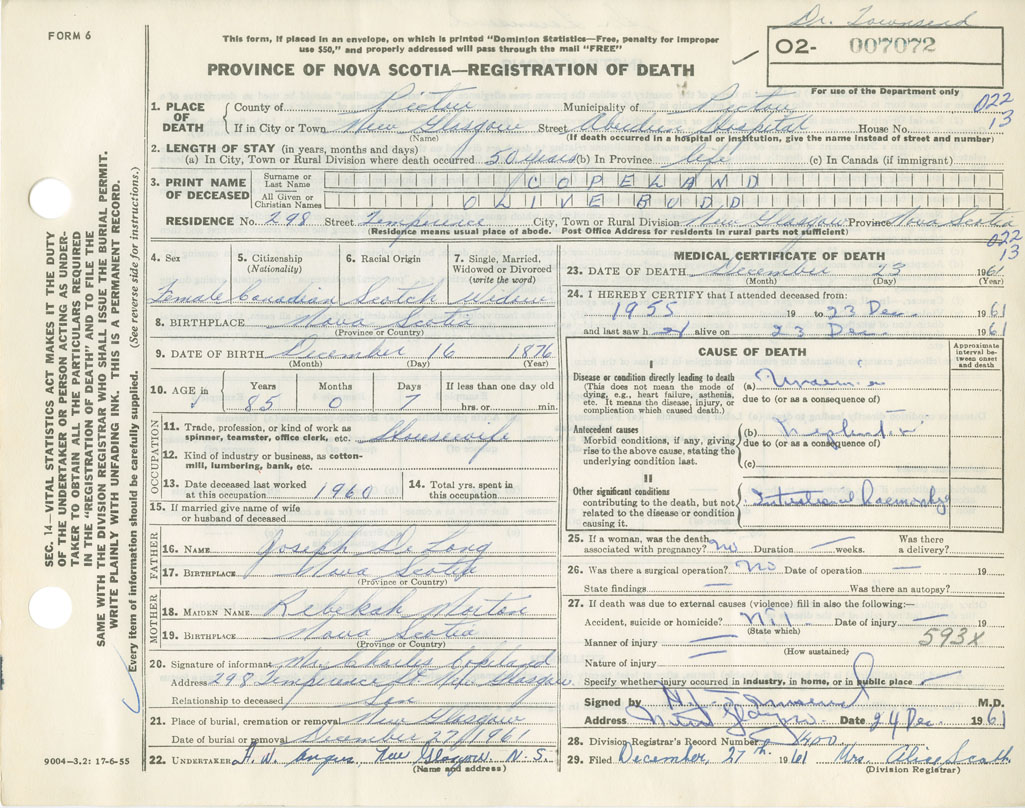 FORM 6
This form, if placed in an envelope, on which is printed "Dominion Statistics—Free, penalty for improper
use $50," and properly addressed will pass through the mail "FREE"
PROVINCE OF NOVA SCOTIA—REGISTRATION OF DEATH
Dr. Townsend
O2- 007072
For use of the Department only
022
13
1. PLACE OF DEATH
County of Pictou Municipality of Pictou
If in City or Town New Glasgow Street Aberdeen Hospital House No.
(Name) (If death occurred in a hospital or institution, give the name instead of street and number)
2. LENGTH OF STAY (in years, months and days)
(a) In City, Town or Rural Division where death occurred 50 years (b) In Province life (c) In Canada (if immigrant)
3. PRINT NAME OF DECEASED
Surname or Last Name COPELAND
All Given or Christian Names OLIVE BUDD
RESIDENCE No. 298 Street Temperence City, Town or Rural Division New Glasgow Province Nova Scotia
(Residence means usual place of abode. Post Office Address for residents in rural parts not sufficient)
022
13
4. Sex 5. Citizenship (Nationality) 6. Racial Origin 7. Single, Married, Widowed or Divorced (write the word)
Female Canadian Scotch Widow
8. BIRTHPLACE Nova Scotia
(Province or Country)
9. DATE OF BIRTH December 16 1876
(Month) (Day) (Year)
10. AGE in Years Months Days If less than one day old
85 0 7 hrs. or min.
OCCUPATION
11. Trade, profession, or kind of work as spinner, teamster, office clerk, etc. Housewife
12. Kind of industry or business, as cotton-mill, lumbering, bank, etc.
13. Date deceased last worked at this occupation 1960
14. Total yrs. spent in this occupation
15. If married give name of wife or husband of deceased
FATHER
16. NAME Joseph De Long
17. BIRTHPLACE Nova Scotia
(Province or Country)
MOTHER
18. MAIDEN NAME Rebekah Morton
19. BIRTHPLACE Nova Scotia
(Province or Country)
20. Signature of informant Mr. Charles Copeland
Address 298 Temperence St New Glasgow
Relationship to deceased Son
21. Place of burial, cremation or removal New Glasgow
Date of burial or removal December 27/1961
22. UNDERTAKER H. W. Angus, New Glasgow, N. S.
(Name and address)
MEDICAL CERTIFICATE OF DEATH
23. DATE OF DEATH December 23 1961
(Month) (Day) (Year)
24. I HEREBY CERTIFY that I attended deceased from:
1955 19 to 23 Dec. 1961
and last saw h er alive on 23 Dec. 1961
CAUSE OF DEATH
Approximate interval between onset and death
I
Disease or condition directly leading to death
(This does not mean the mode of dying, e.g., heart failure, asthenia, etc. It means the disease, injury, or complication which caused death.)
(a) Uraemia
due to (or as a consequence of)
Antecedent causes
Morbid conditions, if any, giving rise to the above cause, stating the underlying condition last.
(b) Nephritis
due to (or as a consequence of)
(c)
II
Other significant conditions
contributing to the death, but not related to the disease or condition causing it.
Intestinal haemorrhage
25. If a woman, was the death associated with pregnancy? No Duration — weeks. Was there a delivery?
26. Was there a surgical operation? No Date of operation — 19
State findings — Was there an autopsy?
27. If death was due to external causes (violence) fill in also the following:—
Accident, suicide or homicide? Nil Date of injury — 19
(State which)
Manner of injury — 593X
(How sustained)
Nature of injury —
Specify whether injury occurred in industry, in home, or in public place —
Signed by Townsend M.D.
Address New Glasgow Date 24 Dec. 1961
28. Division Registrar's Record Number 400
29. Filed December, 27th 1961 Mrs. Alice
(Division Registrar)
SEC. 14—VITAL STATISTICS ACT MAKES IT THE DUTY
OF THE UNDERTAKER OR PERSON ACTING AS UNDER-
TAKER TO OBTAIN ALL THE PARTICULARS REQUIRED
IN THE "REGISTRATION OF DEATH" AND TO FILE THE
SAME WITH THE DIVISION REGISTRAR WHO SHALL ISSUE THE BURIAL PERMIT.
WRITE PLAINLY WITH UNFADING INK. THIS IS A PERMANENT RECORD.
Every item of information should be carefully supplied. (See reverse side for instructions.)
9004—3.2: 17-6-55